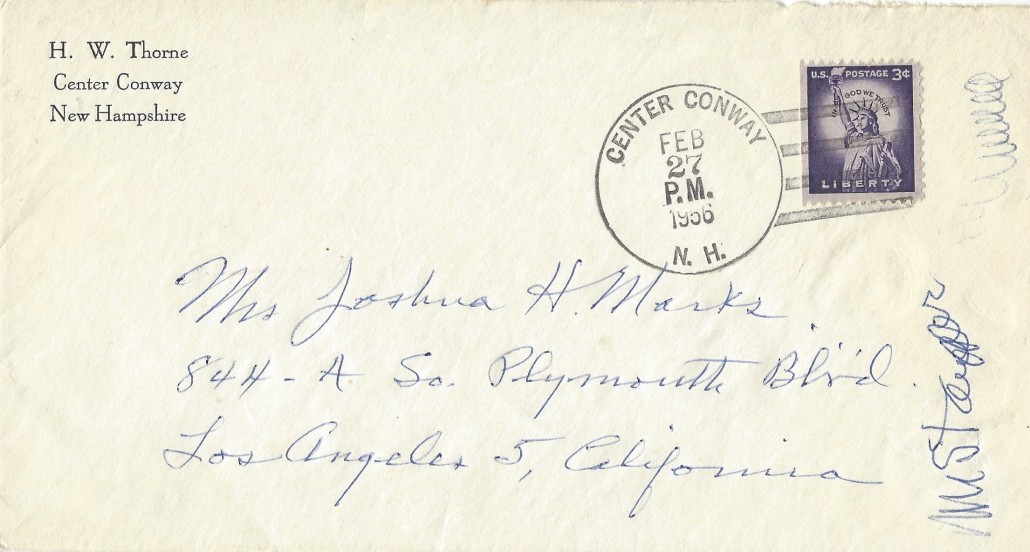 H. W. Thorne
Center Conway
New Hampshire
CENTER CONWAY
FEB
27
P.M.
1956
N. H.
U.S. POSTAGE 3¢
IN GOD WE TRUST
LIBERTY
Mrs Joshua H. Marks
844-A So. Plymouth Blvd.
Los Angeles 5, California